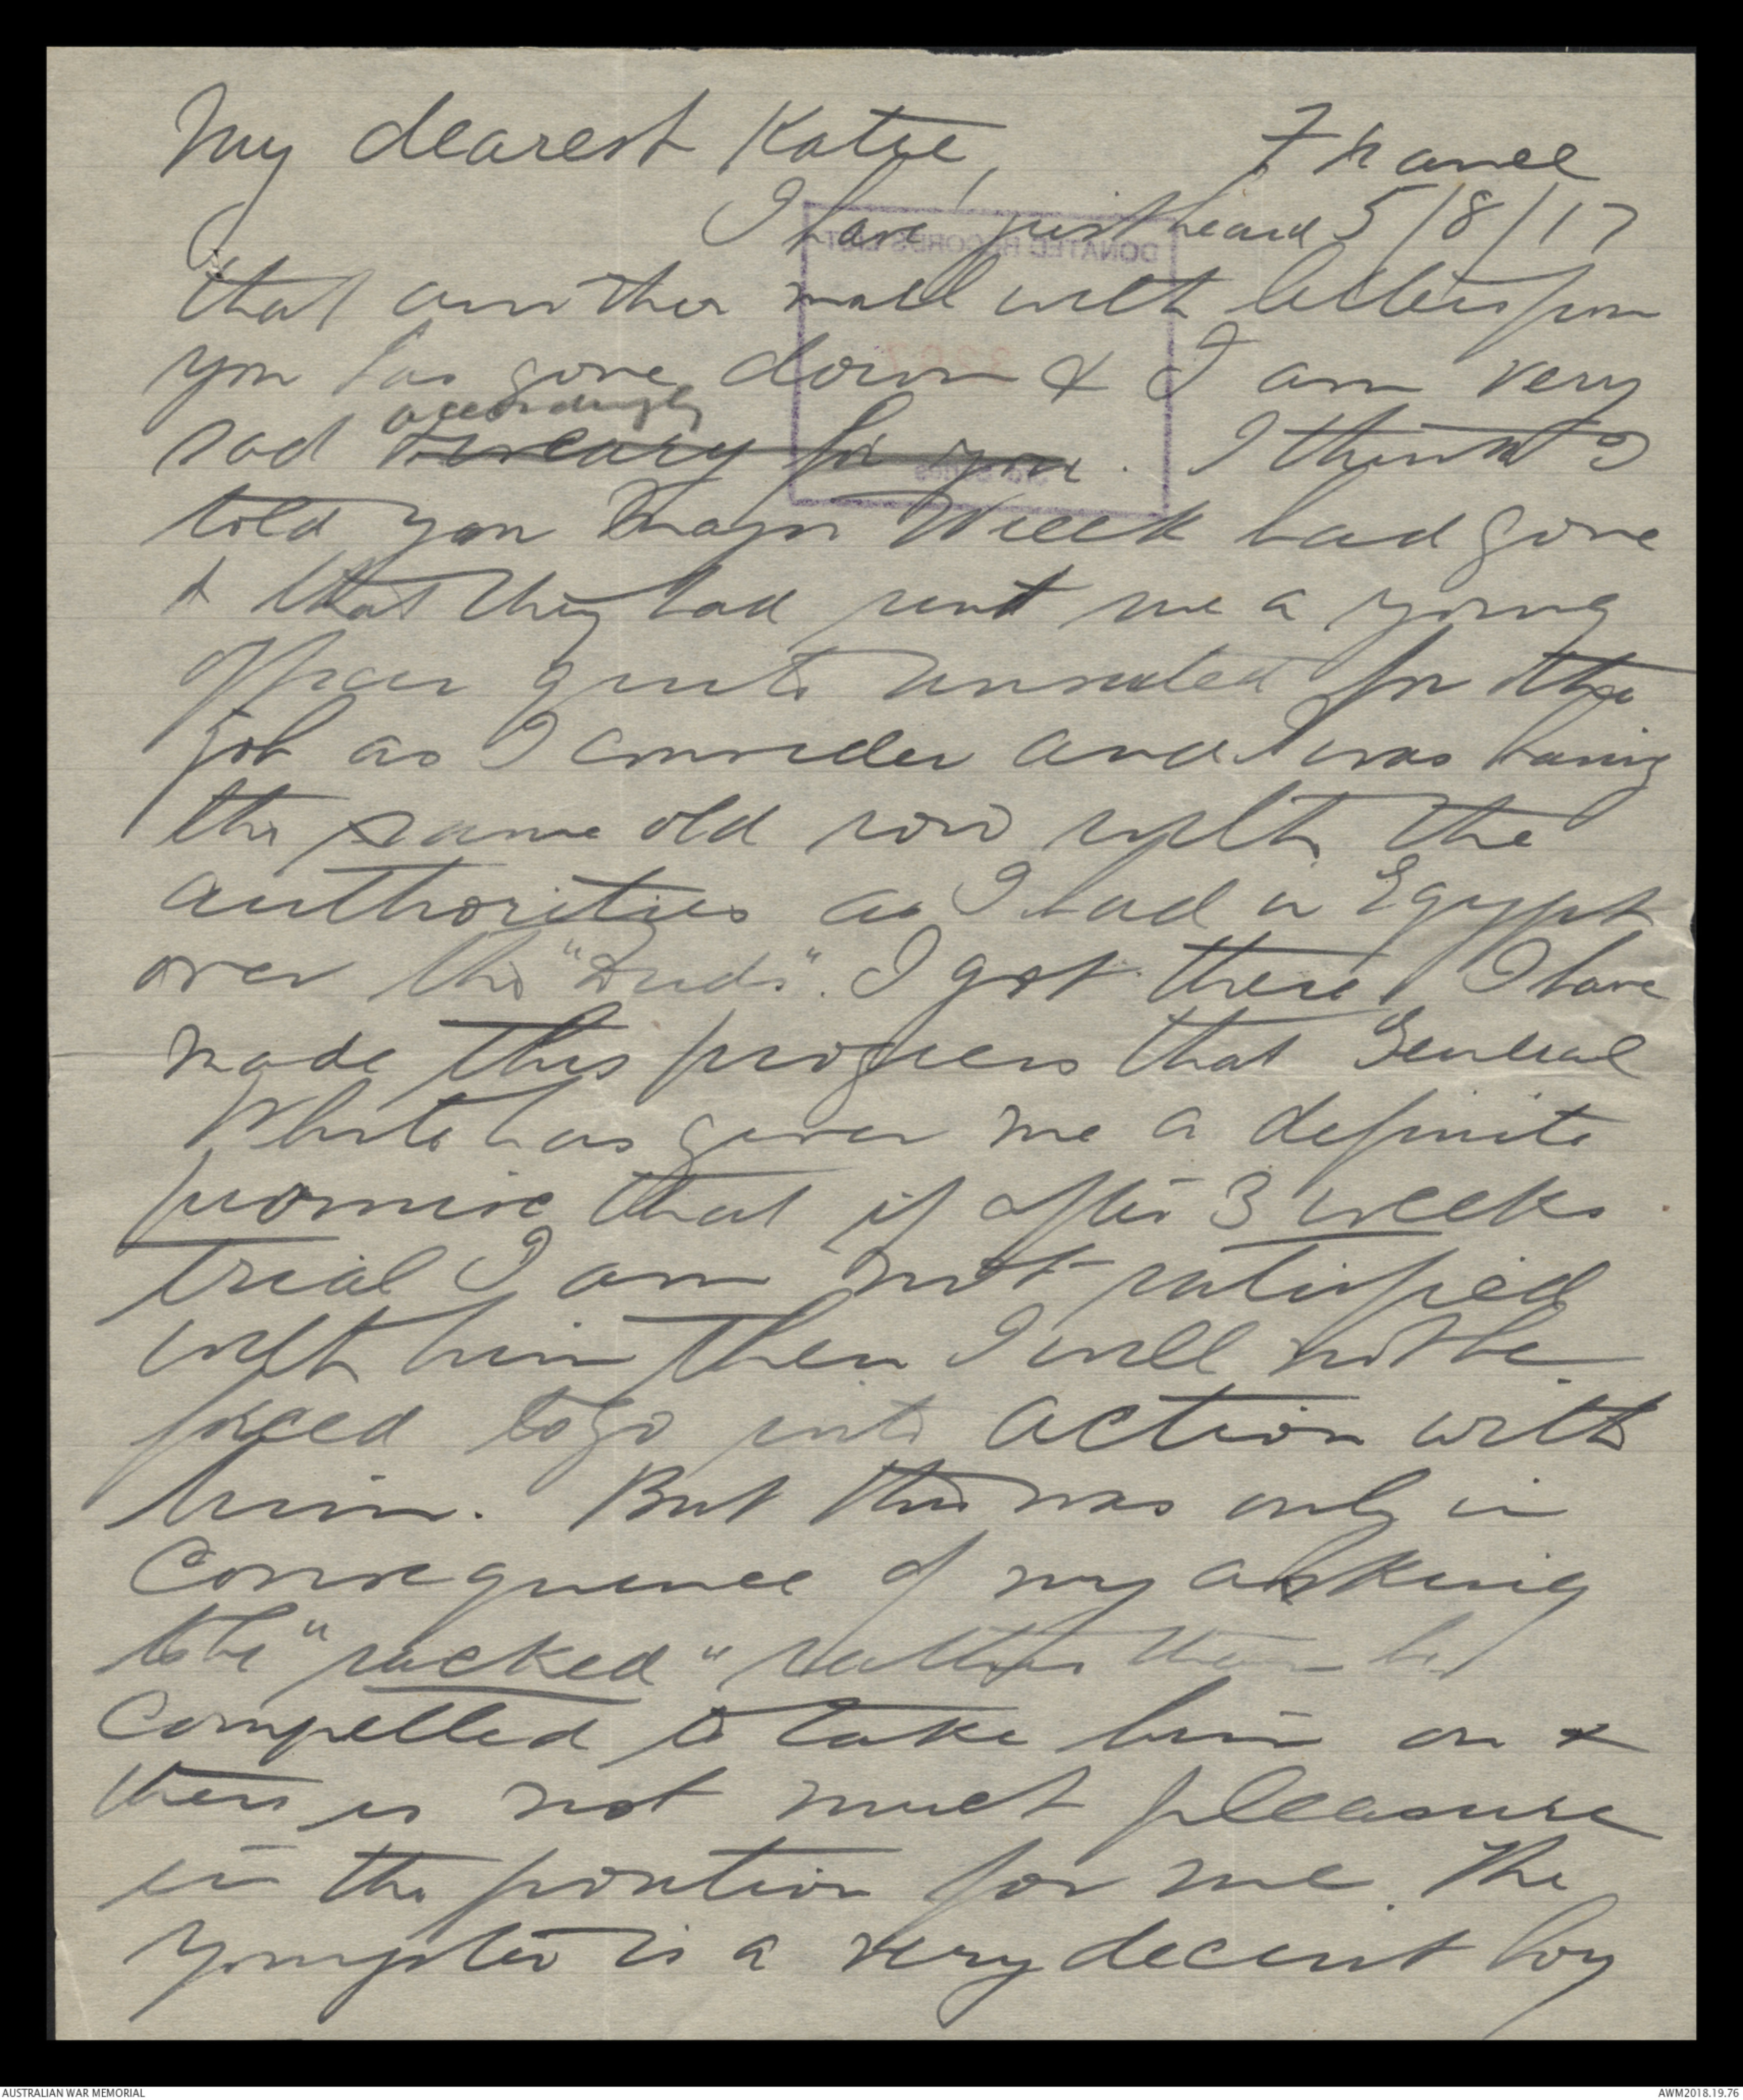 My dearest Katie,
France
I have just heard 5/8/17
that another mail with letters from
you has gone down & I am very
accordingly
sad for you. I think I
told you Major Wieck had gone
& that they had sent me a young
officer quite unsuited for the
job as I consider and I was having
the same old row with the
authorities as I had in Egypt
over the "Duds". I got there. I have
made this progress that General
White has given me a definite
promise that if after 3 weeks
trial I am not satisfied
with him then I will not be
forced to go into action with
him. But this was only in
consequence of my asking
to be "sacked" rather than be
compelled to take him on &
there is not much pleasure
in the position for me. The
youngster is a very decent boy
DONATED RECORDS LIST
3297
AUSTRALIAN WAR MEMORIAL
AWM2018.19.76